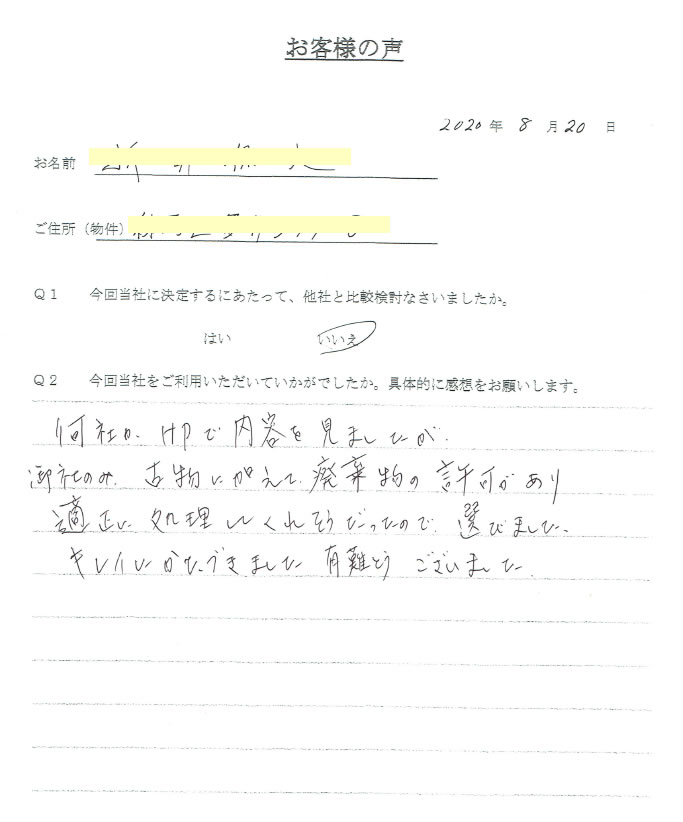 お客様の声
2020年 8月20日
お名前
ご住所（物件）
Q1 今回当社に決定するにあたって、他社と比較検討なさいましたか。
はい いいえ
Q2 今回当社をご利用いただいていかがでしたか。具体的に感想をお願いします。
何社か、HPで内容を見ましたが、
御社のみ、古物にがえて、廃棄物の許可があり
適正に処理してくれそうだったので、選びました。
キレイにかたづきました 有難とうございました。